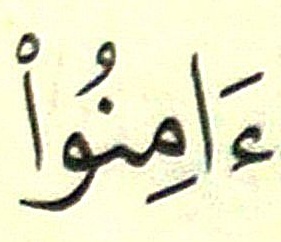 ءَامِنُوا۟